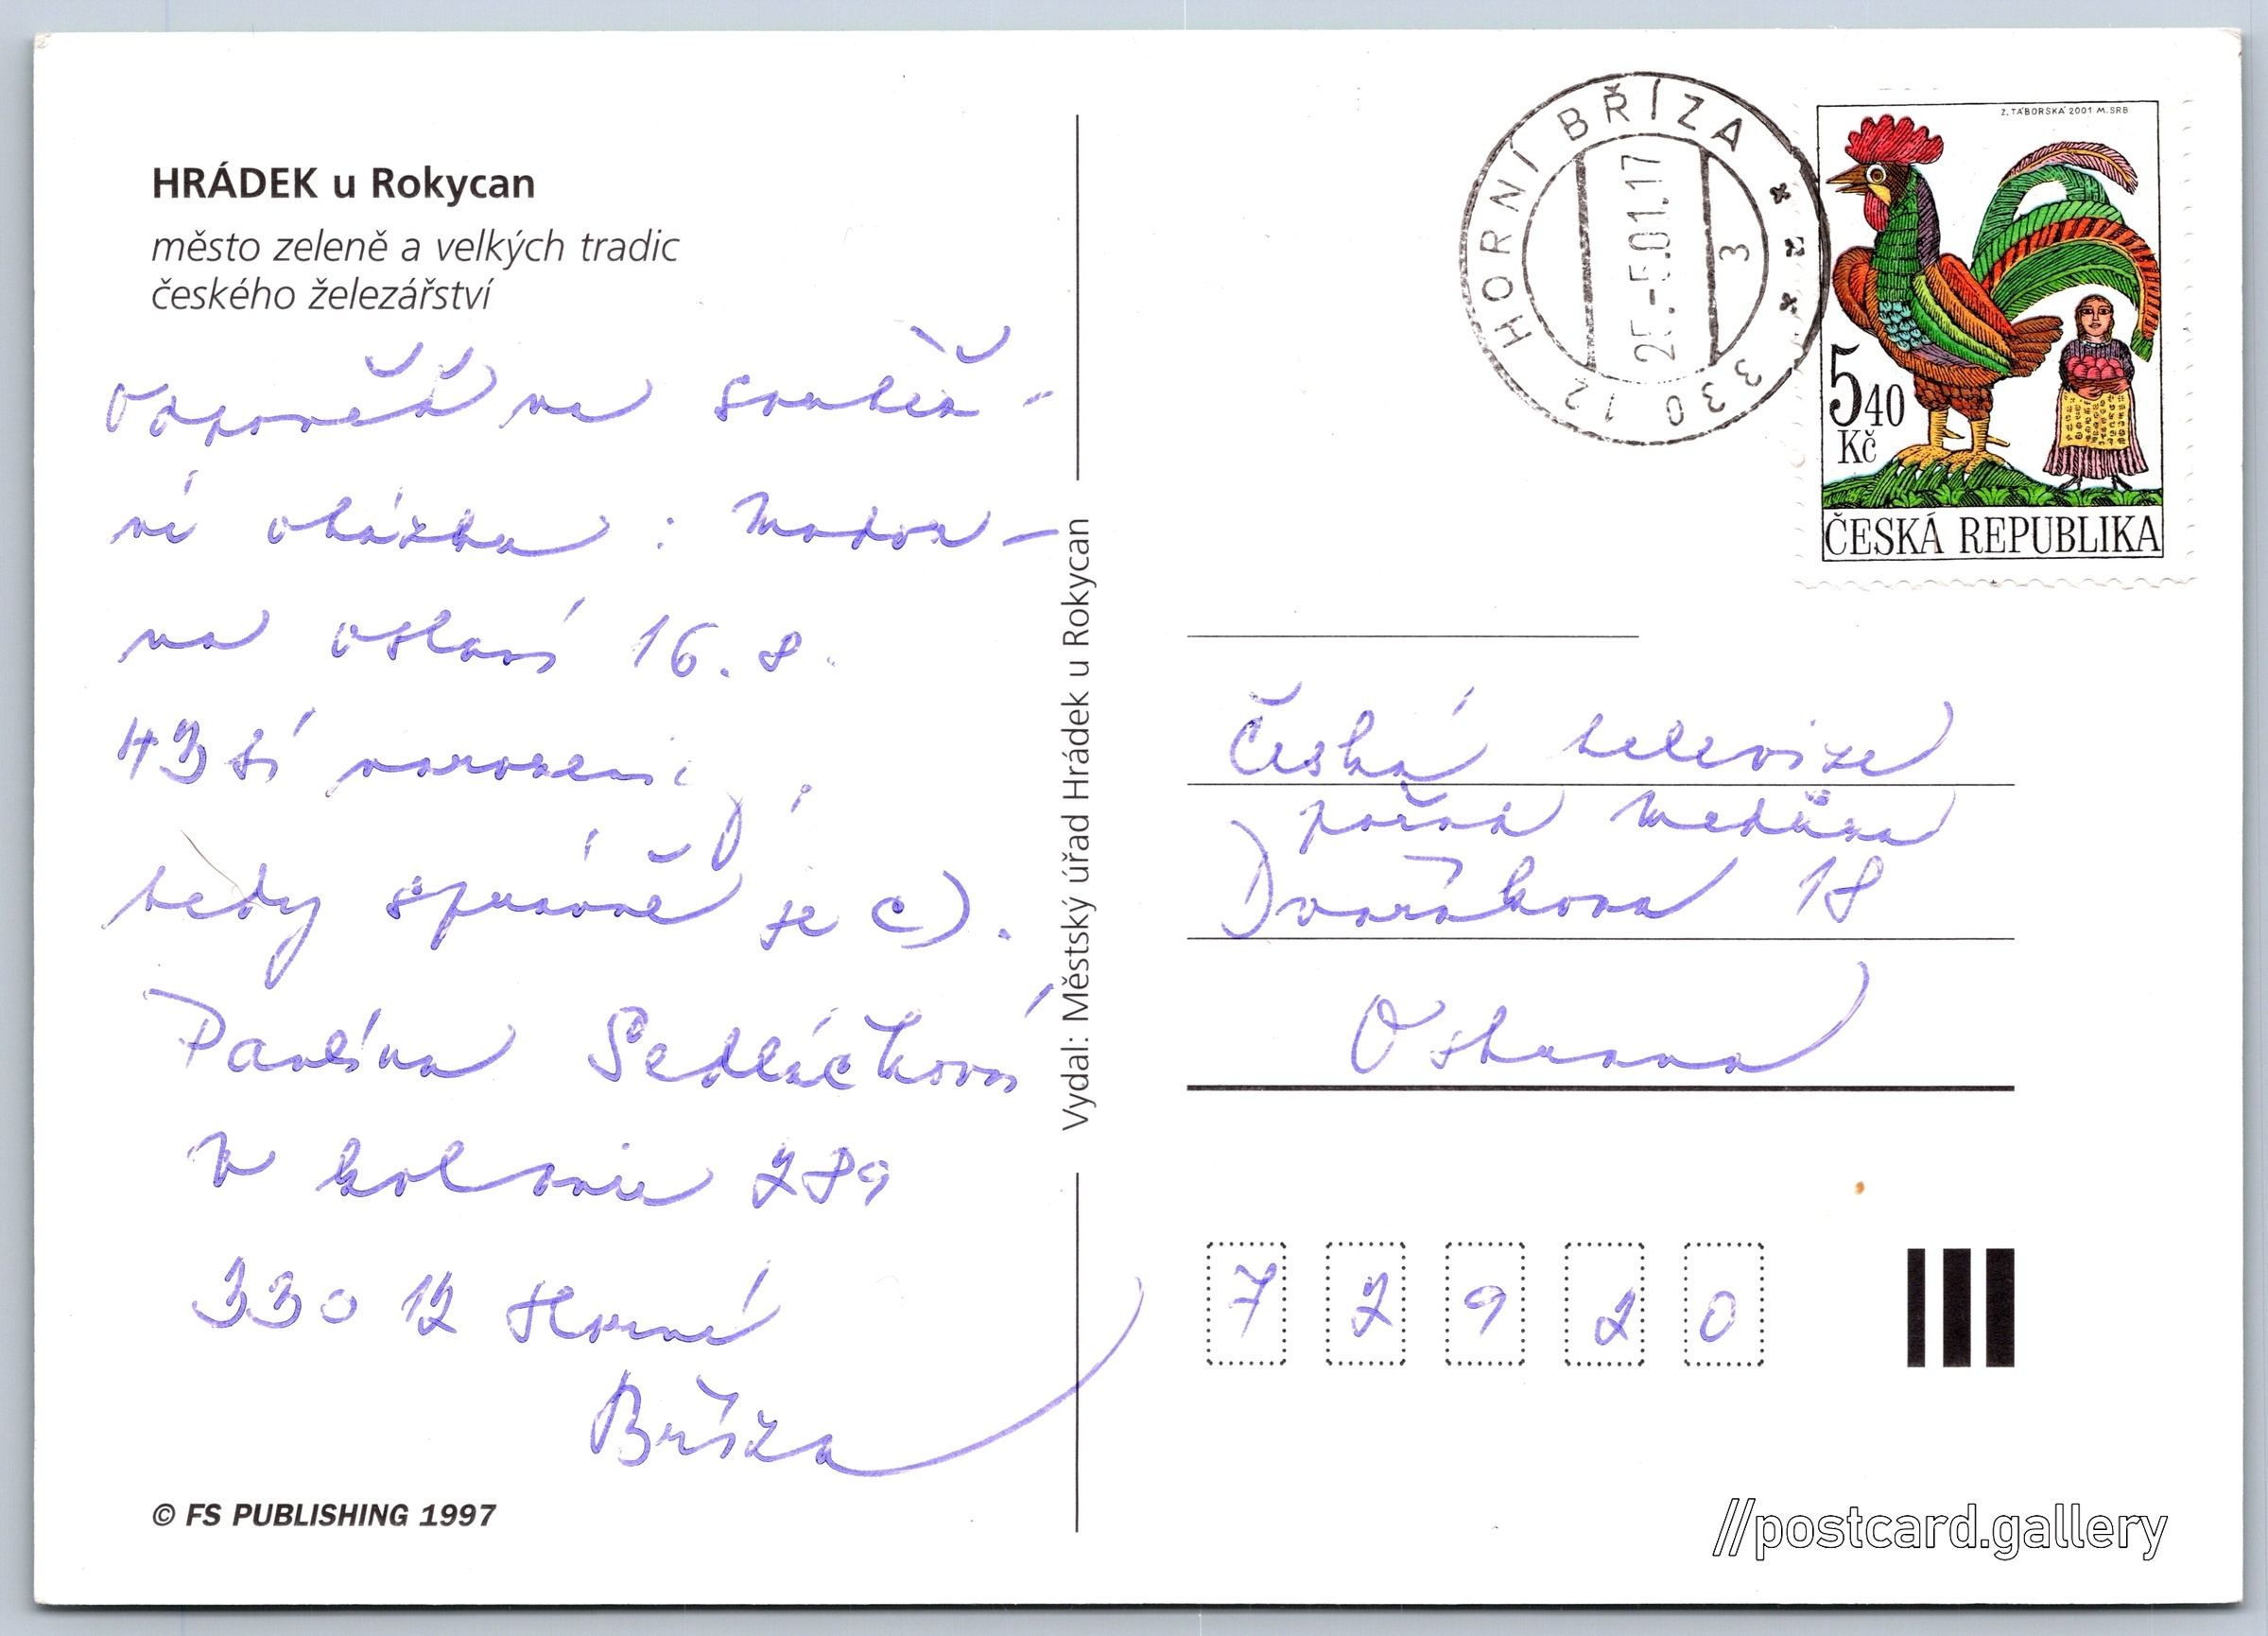 HRÁDEK u Rokycan
město zeleně a velkých tradic
českého železářství
Odpověď na soutěž-
ní otázku : Madon-
na oslaví 16. 8.
43tí narozeniny,
tedy správně je c).
Pavlína Sedláčková
V kolonii 289
330 12 Horní
Bříza
© FS PUBLISHING 1997
Vydal: Městský úřad Hrádek u Rokycan
HORNÍ BŘÍZA
25.-5.01.17
3
330 12
Z. TÁBORSKÁ 2001 M. SRB
5,40
Kč
ČESKÁ REPUBLIKA
Česká televize
pořad Medúza
Dvořákova 18
Ostrava
7 2 9 2 0
//postcard.gallery